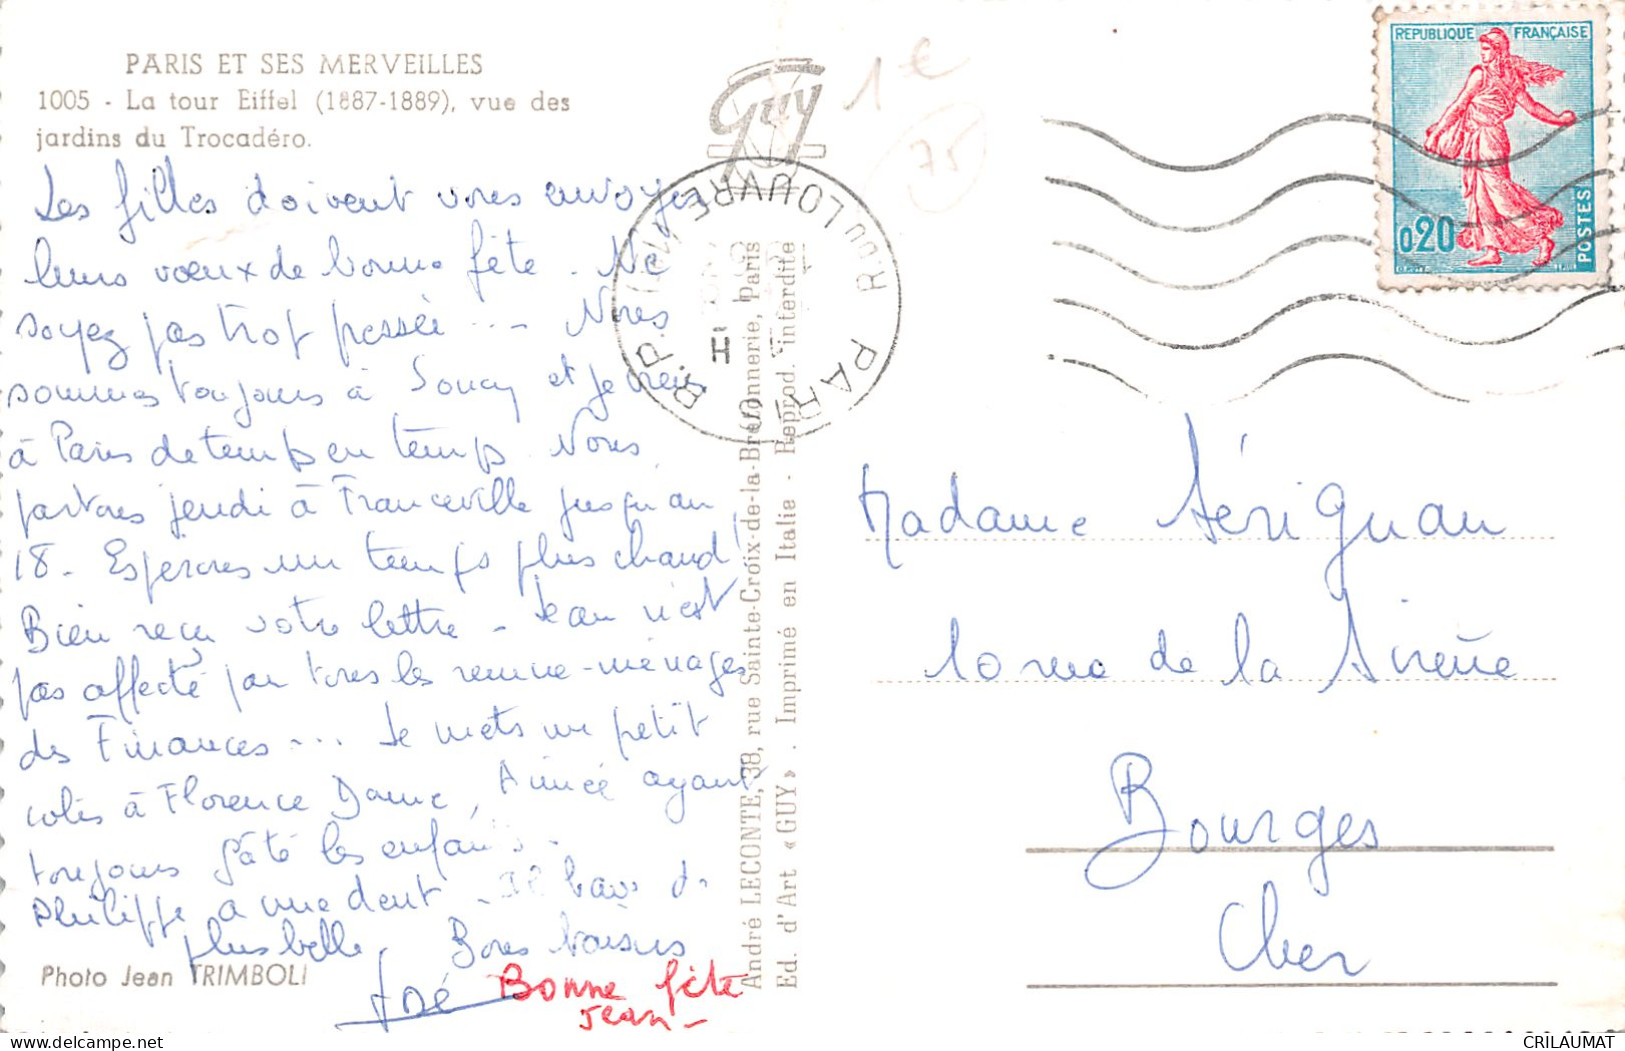 PARIS ET SES MERVEILLES
1005 - La tour Eiffel (1887-1889), vue des
jardins du Trocadéro.
Les filles doivent vous envoyer
leurs vœux de bonne fête. Ne
soyez pas trop pressée ... Nous
sommes toujours à Soucy et je viens
à Paris de temps en temps. Nous
partons jeudi à Franceville jusqu'au
18. Espérons un temps plus chaud!
Bien reçu votre lettre - Jean n'est
pas affecté par tous les remue-ménages
des Finances ... Je mets un petit
colis à Florence Dame, Aimée ayant
toujours gâté les enfants.
Philippe a une dent. Il bave de
plus belle. Bons baisers
José
Bonne fête
Jean -
Photo Jean TRIMBOLI
Guy
André LECONTE, 38, rue Sainte-Croix-de-la-Bretonnerie, Paris
Ed. d'Art «GUY». Imprimé en Italie - Reprod. interdite
1€
75
PARIS
R. DU LOUVRE
B.P. (1er)
H
REPUBLIQUE FRANÇAISE
0,20
POSTES
Madame Sérignan
10 rue de la Sirène
Bourges
Cher
CRILAUMAT